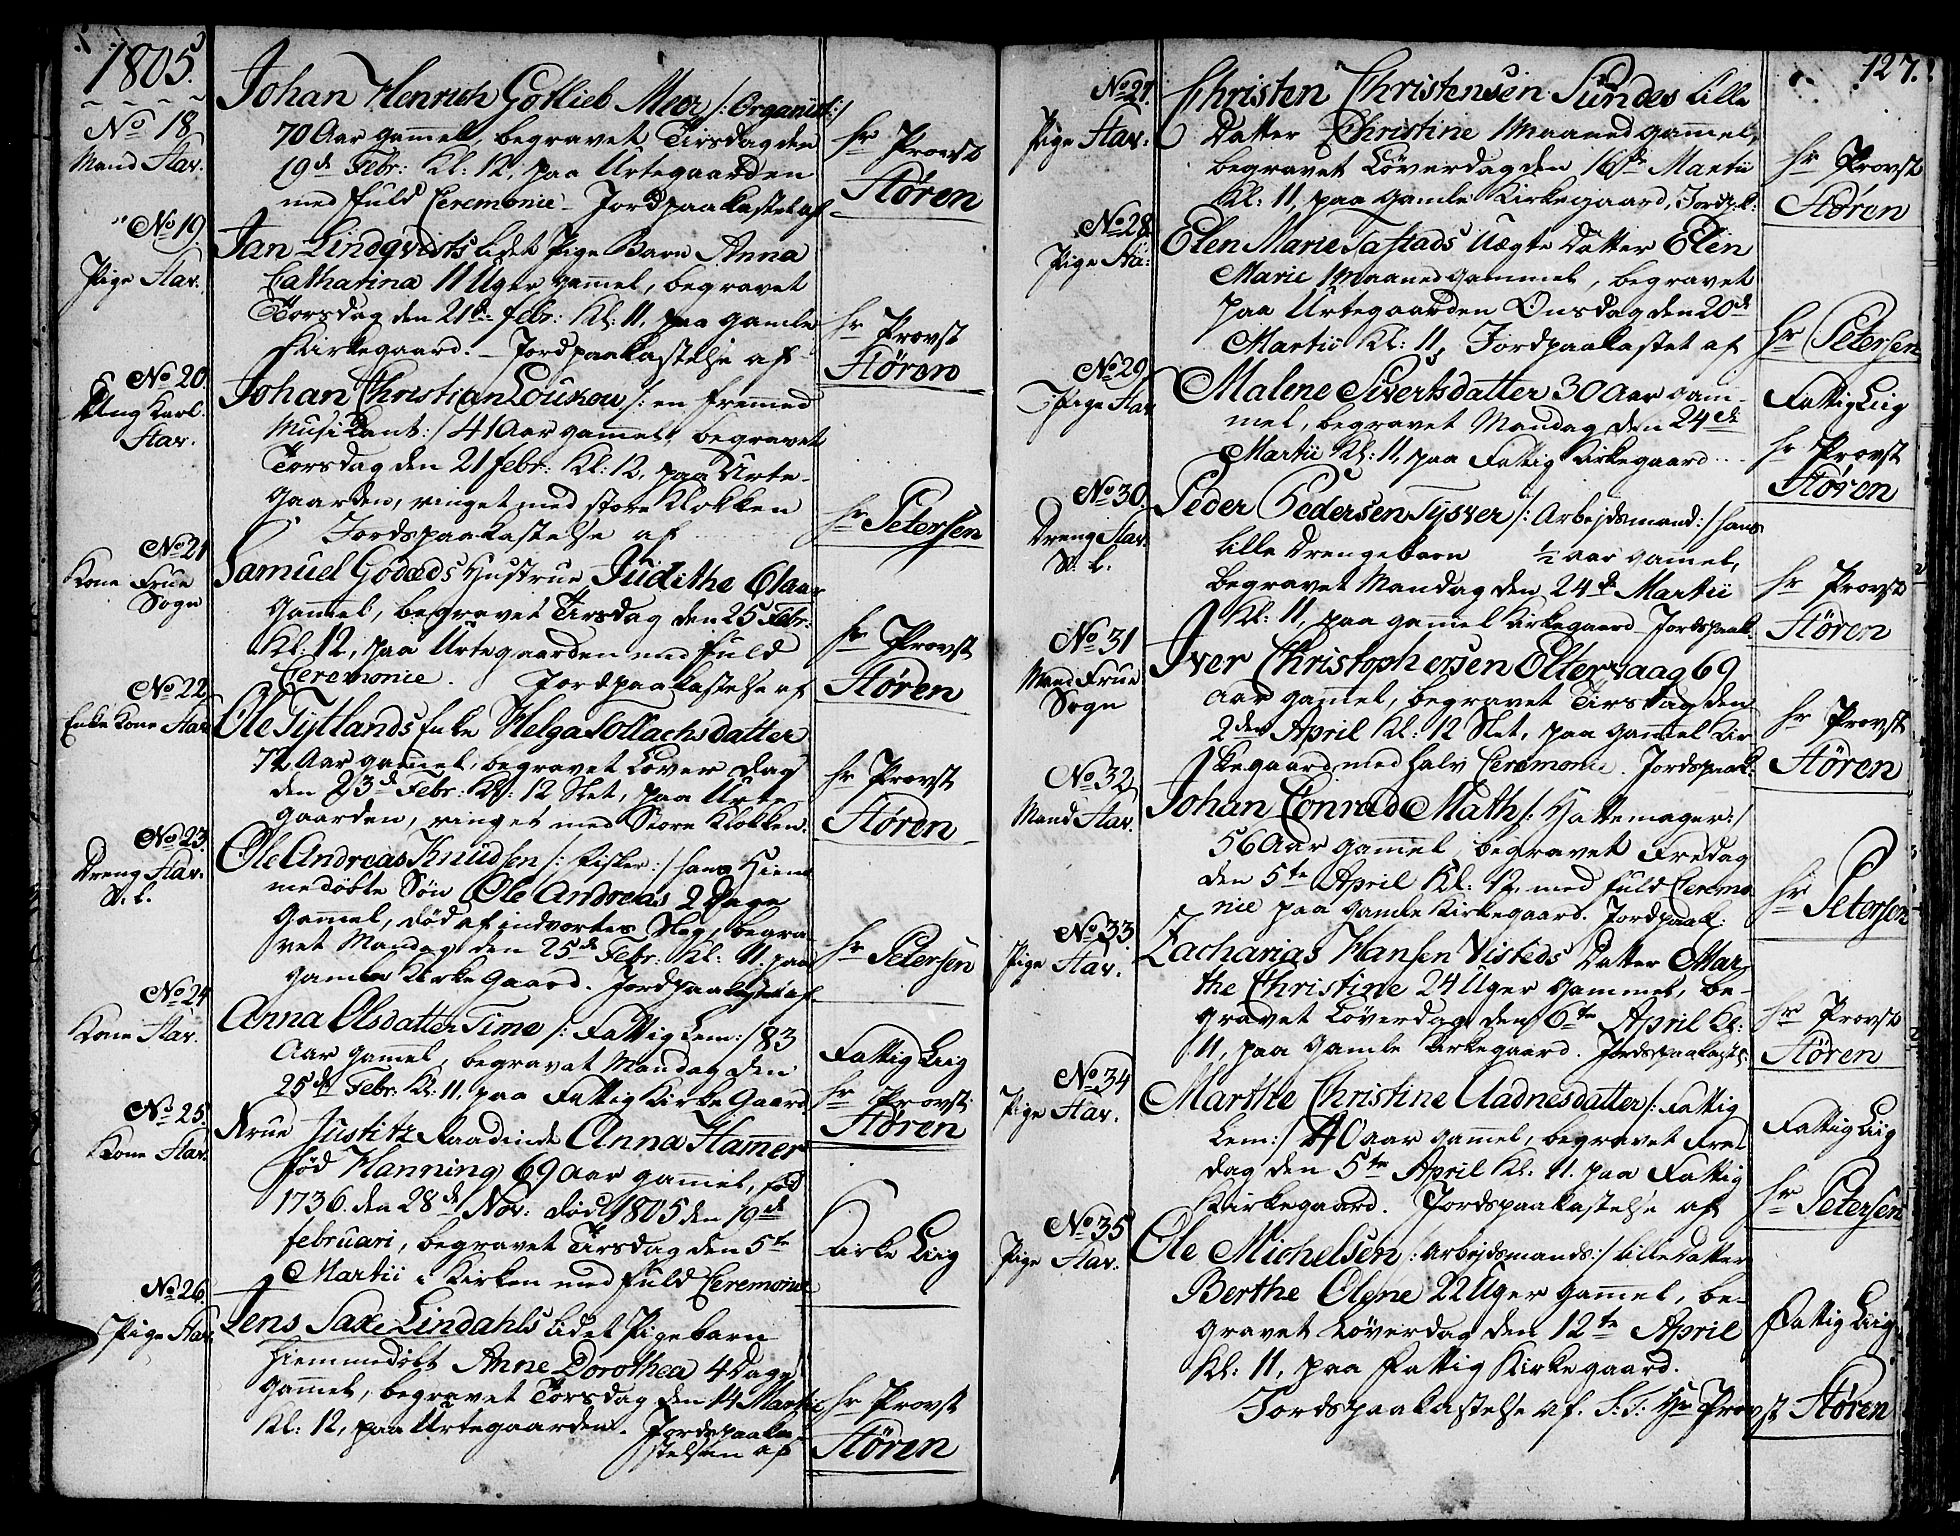 1805.
No 18
Mand Stav.
Johan Henrich Gotlieb Meer /: Organist :/
70 Aar gammel, begravet Tirsdag den
19de Febr: Kl: 12, paa Urtegaarden
med fuld Ceremonie - Jordpaakastet af
hr Provst
Støren
No 19
Pige Stav.
Jan Lindqvists lidet Pige Barn Anna
Catharina 11 Uger gammel, begravet
Torsdag den 21de febr: Kl: 11, paa gamle
Kirkegaard. - Jordpaakastelse af
hr Provst
Støren
No 20
Ung Karl.
Stav.
Johan Christian Loukou /: en fremmed
Musikant :/ 41 Aar gammel begravet
Torsdag den 21 febr: Kl: 12, paa Urte-
gaarden, ringet med store Klokken
Jordspaakastelse af
hr Petersen
No 21
Kone Frue
Sogn
Samuel Godæds Hustrue Judithe 61 aar
gammel, begravet Tirsdag den 25 Febr:
Kl: 12, paa Urtegaarden med fuld
Ceremonie. Jordpaakastelse af
hr Provst
Støren
No 22
Enke Kone Stav
Ole Tytlands Enke Helga Tollachsdatter
72 Aar gammel, begravet Løver dag
den 23de Febr: Kl: 12 Slet, paa Urte
gaarden, ringet med Store Klokken.
hr Provst
Støren
No 23
Dreng Stav.
S. L.
Ole Andreas Knudsen /: Fisker :/ hans Hiem
medøbte Søn Ole Andreas 2 Dage
gammel, død af indvortes Slag, begra-
vet Mandag den 25de Febr: Kl: 11. paa
gamle Kirke Gaard. Jordpaakastet af
hr Petersen
No 24
Kone Stav.
Anna Olsdatter Time /: Fattig Lem :/ 83
Aar gammel, begravet Mandag den
25de Febr: Kl: 11, paa Fattig Kirke Gaard
Fattig Liig
hr Provst
Støren
No 25.
Kone Stav.
Frue Justitz Raadinde Anna Hamer
fød Hanning 69 Aar gammel, fød
1736. den 28de Nov: død 1805 den 19de
februari, begravet Tirsdag den 5te
Martii i Kirken med fuld Ceremonie
Kirke Liig
No 26.
Pige Stav.
Jens Saxe Lindahls lidet Pigebarn
hiemmedøbt Anne Dorothea 4 Dage
gammel, begravet Torsdag den 14 Martii
Kl: 12, paa Urtegaarden. Jordspaaka-
stelsen af
hr Provst
Støren
127.
No 27.
Pige Stav.
Christen Christensen Sundes lille
Datter Christine 1 Maaned gammel,
begravet Løverdag den 16de Martii
Kl: 11, paa gamle Kirkegaard, Jordp.k:
hr Provst
Støren
No 28
Pige Sta:
Elen Marie Tastads Uægte Datter Elen
Marie 1 Maaned gammel, begravet
paa Urtegaarden Onsdag den 20de
Martii Kl: 11, Jordpaakastet af
hr Petersen
No 29
Pige Stav
Malene Siverts datter 30 Aar gam-
mel, begravet Mandag den 24de
Martii Kl: 11, paa Fattig Kirkegaard
Fattig Liig
hr Provst
Støren
No 30
Dreng Stav.
S. L.
Peder Pedersen Tysver /: Arbejdsmand :/ hans
lille Drengebarn ½ aar gammel,
begravet Mandag den 24de Martii
Kl: 11, paa gammel Kirkegaard Jordspaak:
hr Provst
Støren
No 31
Mand Frue
Sogn
Iver Christophersen Eltervaag 69
aar gammel, begravet Tirsdag den
2den April Kl: 12 Slet, paa gammel Kir
kegaard, med halv Ceremonie. Jordspaak:
hr Provst
Støren
No 32
Mand Stav.
Johan Conrad Math /: Hattemager :/
56 Aar gammel, begravet Fredag
den 5te April Kl: 12, med fuld Ceremo
nie paa gamle Kirkegaard. Jordpaak:
hr Petersen
No 33.
Pige Stav.
Zacharias Hansen Visteds Datter Mar-
the Christine 24 Uger gammel, be-
gravet Løverdag den 6te April Kl:
11, paa gamle Kirkegaard. Jordspaakasts:
hr Provst
Støren
No 34
Pige Stav.
Marthe Christine Aadnesdatter /: Fattig
Lem :/ 40 aar gammel, begravet Fre-
dag den 5te April Kl: 11. paa Fattig
Kirkegaard. Jordspaakastelse af
Fattig Liig
hr Petersen
No 35
Pige Stav.
Ole Michelsen /: Arbejdsmands :/ lille Datter
Berthe Olene 22 Uger gammel, be-
gravet Løverdag den 12te April
Kl: 11, paa Fattig Kirkegaard.
Jordspaakastelse af. S. T. Hr Provst Støren
Fattig Liig